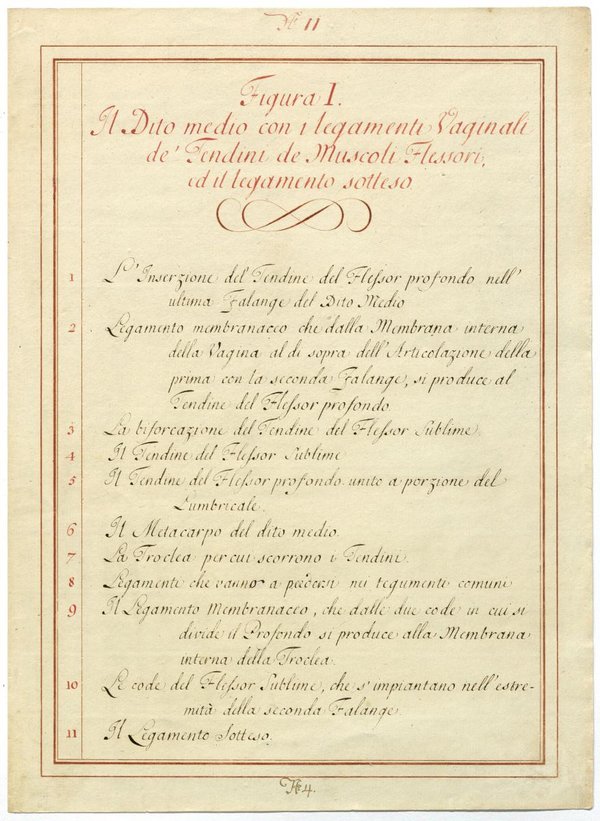 N. 11
Figura I.
Il Dito medio con i legamenti Vaginali
de' Tendini de Muscoli Flessori,
ed il legamento sotteso
1 L'Inserzione del Tendine del Flessor profondo nell'
ultima Falange del Dito Medio
2 Legamento membranaceo che dalla Membrana interna
della Vagina al di sopra dell'Articolazione della
prima con la seconda Falange, si produce al
Tendine del Flessor profondo
3 La biforcazione del Tendine del Flessor Sublime.
4 Il Tendine del Flessor Sublime
5 Il Tendine del Flessor profondo unito a porzione del
Lumbricale.
6 Il Metacarpo del dito medio.
7 La Troclea per cui scorrono i Tendini.
8 Legamenti che vanno a perdersi nei tegumenti comuni
9 Il Legamento Membranaceo, che dalle due code in cui si
divide il Profondo si produce alla Membrana
interna della Troclea.
10 Le code del Flessor Sublime, che s'impiantano nell'estre-
mità della seconda Falange.
11 Il Legamento Sotteso.
4.